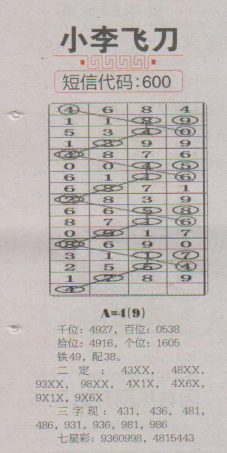 小李飞刀
短信代码:600
4 6 8 4
1 1 8 9
5 3 4 6
1 3 9 9
8 7 6
0 0 4 5
6 1 1 6
6 8 7 1
2 8 3 9
6 6 5 8
8 7 1 6
0 9 1 7
8 6 9 0
3 1 1 7
2 5 5 4
1 7 8 9
4
A=4(9)
千位: 4927, 百位: 0538
拾位: 4916, 个位: 1605
铁49, 配38。
二定: 43XX, 48XX,
93XX, 98XX, 4X1X, 4X6X,
9X1X, 9X6X
三字现: 431, 436, 481,
486, 931, 936, 981, 986
七星彩: 9360998, 4815443